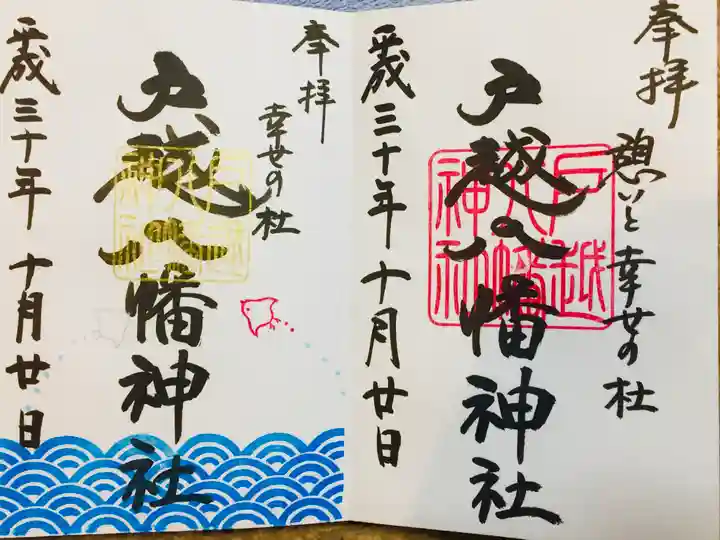 奉拝
憩いと幸せの杜
戸越八幡神社
戸越
八幡
神社
平成三十年十月廿日
奉拝
幸せの杜
戸越八幡神社
戸越
八幡
神社
平成三十年十月廿日